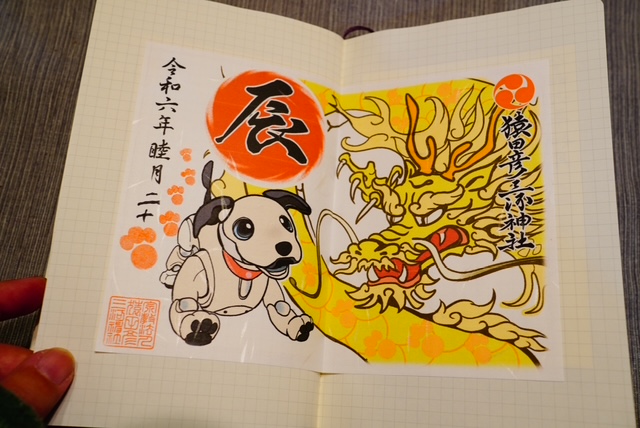 猿田彦三河神社
辰
令和六年 睦月 二十